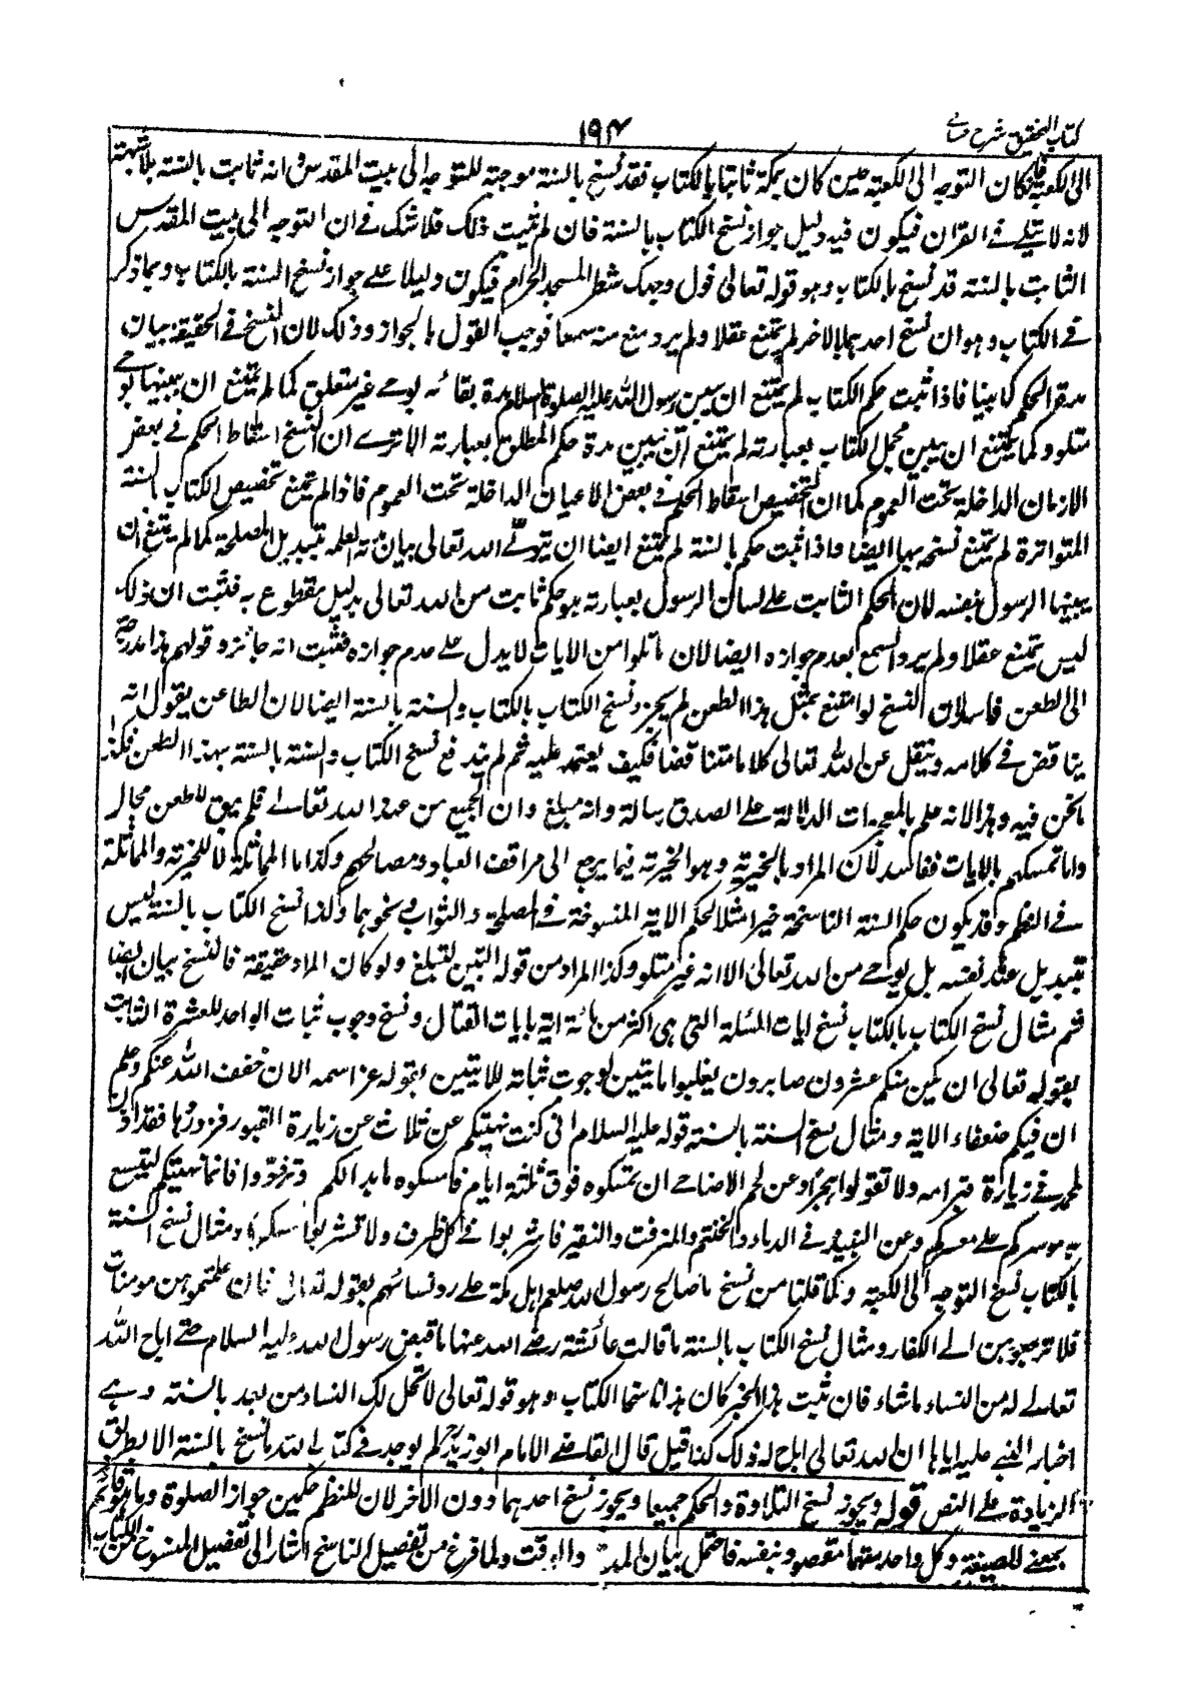 كتاب التحقيق شرح حسامى
١٩٣
الى الكعبة فان كان التوجه الى الكعبة حين كان بمكة ثابتا بالكتاب فقد نسخ بالسنة موجبة للتوجه الى بيت المقدس وانه ثابت بالسنة بلا شبهة
لانه لا يتلى فى القران فيكون فيه دليل جواز نسخ الكتاب بالسنة فان لم يثبت ذلك فلا شك فى ان التوجه الى بيت المقدس
الثابت بالسنة قد نسخ بالكتاب وهو قوله تعالى فول وجهك شطر المسجد الحرام فيكون دليلا على جواز نسخ السنة بالكتاب وبما ذكر
فى الكتاب وهو ان نسخ احدهما بالاخر لم يمتنع عقلا ولم يرد منع منه سمعا فوجب القول بالجواز وذلك لان النسخ فى الحقيقة بيان
مدة الحكم كما بينا فاذا ثبت حكم الكتاب لم يمتنع ان يبين رسول الله عليه الصلوة والسلام مدة بقائه بوحى غير متعلق كما لم يمتنع ان يبينها بوحى
متلو وكما لم يمتنع ان يبين مجمل الكتاب بعبارته لم يمتنع ان يبين مدة حكم المطلق بعبارته الا ترى ان النسخ اسقاط الحكم فى بعض
الازمان الداخلة تحت العموم كما ان التخصيص اسقاط الحكم فى بعض الاعيان الداخلة تحت العموم فاذا لم يمتنع تخصيص الكتاب بالسنة
المتواترة لم يمتنع نسخه بها ايضا واذا ثبت حكم بالسنة لم يمتنع ايضا ان يتولى الله تعالى بيان مدته لعلمه بتبديل المصلحة كما لم يمتنع ان
يبينها الرسول بنفسه لان الحكم الثابت على لسان الرسول بعبارته هو حكم ثابت من الله تعالى بدليل مقطوع به فثبت ان ذلك
ليس يمتنع عقلا ولم يرد السمع بعدم جوازه ايضا لان ما تلوا من الايات لا يدل على عدم جوازه فثبت انه جائز وقولهم هذا مدرجة
الى الطعن فاسد لان النسخ لو امتنع بمثل هذا الطعن لم يجز نسخ الكتاب بالكتاب والسنة بالسنة ايضا لان الطاعن يقول انه
يناقض فى كلامه وينقل عن الله تعالى كلاما متناقضا فكيف يعتمد عليه ثم لم يندفع نسخ الكتاب والسنة بالسنة بهذا الطعن فكذا
ما نحن فيه وهذا لانه علم بالمعجزات الدلالة على الصدق رسالة وانه مبلغ وان الجميع من عند الله تعالى فلم يبق للطعن مجال
واما تمسكهم بالايات ففاسد لان المراد بالخيرية وهو الخيرية فيما يرجع الى مرافق العباد ومصالحهم وكذا المماثلة لا الخيرية والمماثلة
فى النظم وقد يكون حكم السنة الناسخة خيرا مثلا لحكم الاية المنسوخة فى المصلحة والثواب ونحوهما وكذا نسخ الكتاب بالسنة ليس
تبديل عند نفسه بل بوحى من الله تعالى الا انه غير متلو وكذا المراد من قوله لتبين لتبلغ ولو كان المراد حقيقة فالنسخ بيان ايضا
ثم مثال نسخ الكتاب بالكتاب نسخ ايات المسئلة التى هى اكثر من مائة اية بايات القتال ونسخ وجوب ثبات الواحد للعشرة الثابت
بقوله تعالى ان يكن منكم عشرون صابرون يغلبوا مايتين لوجوب ثباته للاثنين بقوله عز اسمه الان خفف الله عنكم وعلم
ان فيكم ضعفاء الاية ومثال نسخ السنة بالسنة قوله عليه السلام انى كنت نهيتكم عن ثلاث عن زيارة القبور فزوروها فقد اذن
لمحمد فى زيارة قبر امه ولا تقولوا هجرا وعن لحم الاضاحى ان تمسكوه فوق ثلثة ايام فامسكوه ما بدا لكم وتزودوا فانما نهيتكم ليتسع
به موسركم على معسركم وعن النبيذ فى الدباء والحنتم والمزفت والنقير فاشربوا فى كل ظرف ولا تشربوا مسكرا ومثال نسخ السنة
بالكتاب نسخ التوجه الى الكعبة وكما قلنا من نسخ ما صالح رسول الله صلعم اهل مكة على رد نسائهم بقوله تعالى فان علمتموهن مومنات
فلا ترجعوهن الى الكفار ومثال نسخ الكتاب بالسنة ما قالت عائشة رضى الله عنها ما قبض رسول الله عليه السلام حتى اباح الله
تعالى له من النساء ما شاء فان ثبت هذا الخبر كان هذا ناسخا الكتاب وهو قوله تعالى لا تحل لك النساء من بعد بالسنة وهى
اخبار النبى عليه اياها ان الله تعالى اباح له ذلك كذا قيل قال القاضى الامام ابو زيد لم يوجد فى كتاب الله ما نسخ بالسنة الا بطريق
الزيادة على النص قوله ويجوز نسخ التلاوة والحكم جميعا ويجوز نسخ احدهما دون الاخر لان للنظم حكمين جواز الصلوة وما هو قائم
بمعنى الصيغة وكل واحد منهما مقصود بنفسه فاحتمل بيان المدة والوقت ولما فرغ من تفصيل الناسخ اشار الى تفصيل المنسوخ